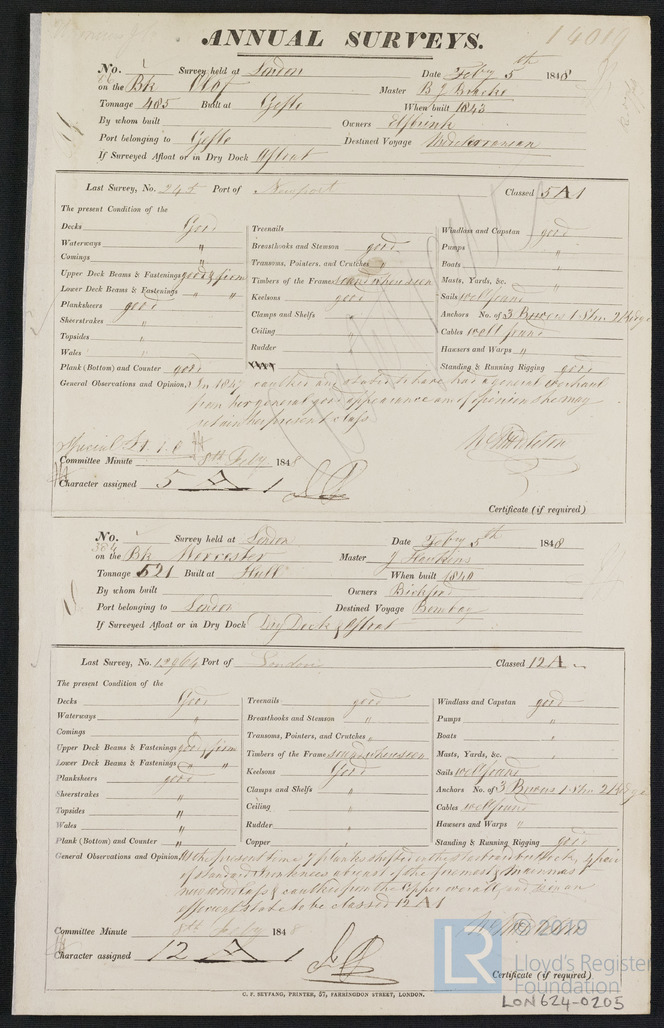 14019
ANNUAL SURVEYS.
No. Survey held at London Date Feby 5th 1848
on the Bk Olof Master
Tonnage 405 Built at Gefle When built 1843
By whom built Owners
Port belonging to Gefle Destined Voyage Mediterranean
If Surveyed Afloat or in Dry Dock Afloat
Last Survey, No. 245 Port of Newport Classed 5 A 1
The present Condition of the
Decks Good Treenails Windlass and Capstan good
Waterways " Breasthooks and Stemson good Pumps "
Comings " Transoms, Pointers, and Crutches " Boats "
Upper Deck Beams & Fastenings good & firm Timbers of the Frame sound when seen Masts, Yards, &c. "
Lower Deck Beams & Fastenings " " Keelsons good Sails well found
Planksheers good Clamps and Shelfs " Anchors No. of 3 Bowers 1 Str. 2 Kedge
Sheerstrakes " Ceiling " Cables well found
Topsides " Rudder " Hawsers and Warps "
Wales " Standing & Running Rigging good
Plank (Bottom) and Counter good
General Observations and Opinion, In 1847 caulked and stated to have had a general overhaul
from her general good appearance am of opinion she may
retain her present class
Special £1.1.0
Committee Minute 8th Feby 1848
Character assigned 5 A 1
Certificate (if required)
No. Survey held at London Date Feby 5th 1848
on the Bk Worcester Master J Hawkins
Tonnage 521 Built at Hull When built 1840
By whom built Owners Bickford
Port belonging to London Destined Voyage Bombay
If Surveyed Afloat or in Dry Dock Dry Dock & Afloat
Last Survey, No. 12964 Port of London Classed 12 A
The present Condition of the
Decks Good Treenails good Windlass and Capstan good
Waterways " Breasthooks and Stemson " Pumps "
Comings Transoms, Pointers, and Crutches " Boats "
Upper Deck Beams & Fastenings good & firm Timbers of the Frame sound when seen Masts, Yards, &c. "
Lower Deck Beams & Fastenings " " Keelsons Good Sails well found
Planksheers good Clamps and Shelfs " Anchors No. of 3 Bowers 1 Str. 2 Kedge
Sheerstrakes " Ceiling " Cables well found
Topsides " Rudder " Hawsers and Warps "
Wales " Copper Standing & Running Rigging good
Plank (Bottom) and Counter "
General Observations and Opinion, At the present time 7 planks shifted in the starboard buttock, 4 pair
of standard knees abreast of the foremost & mainmast
caulked from the Copper
efficient state to be classed 12 A 1
Committee Minute 8th Feby 1848
Character assigned 12 A 1
Certificate (if required)
C. F. SEYFANG, PRINTER, 57, FARRINGDON STREET, LONDON.
© 2019
LR Lloyd's Register
Foundation
LON624-0205